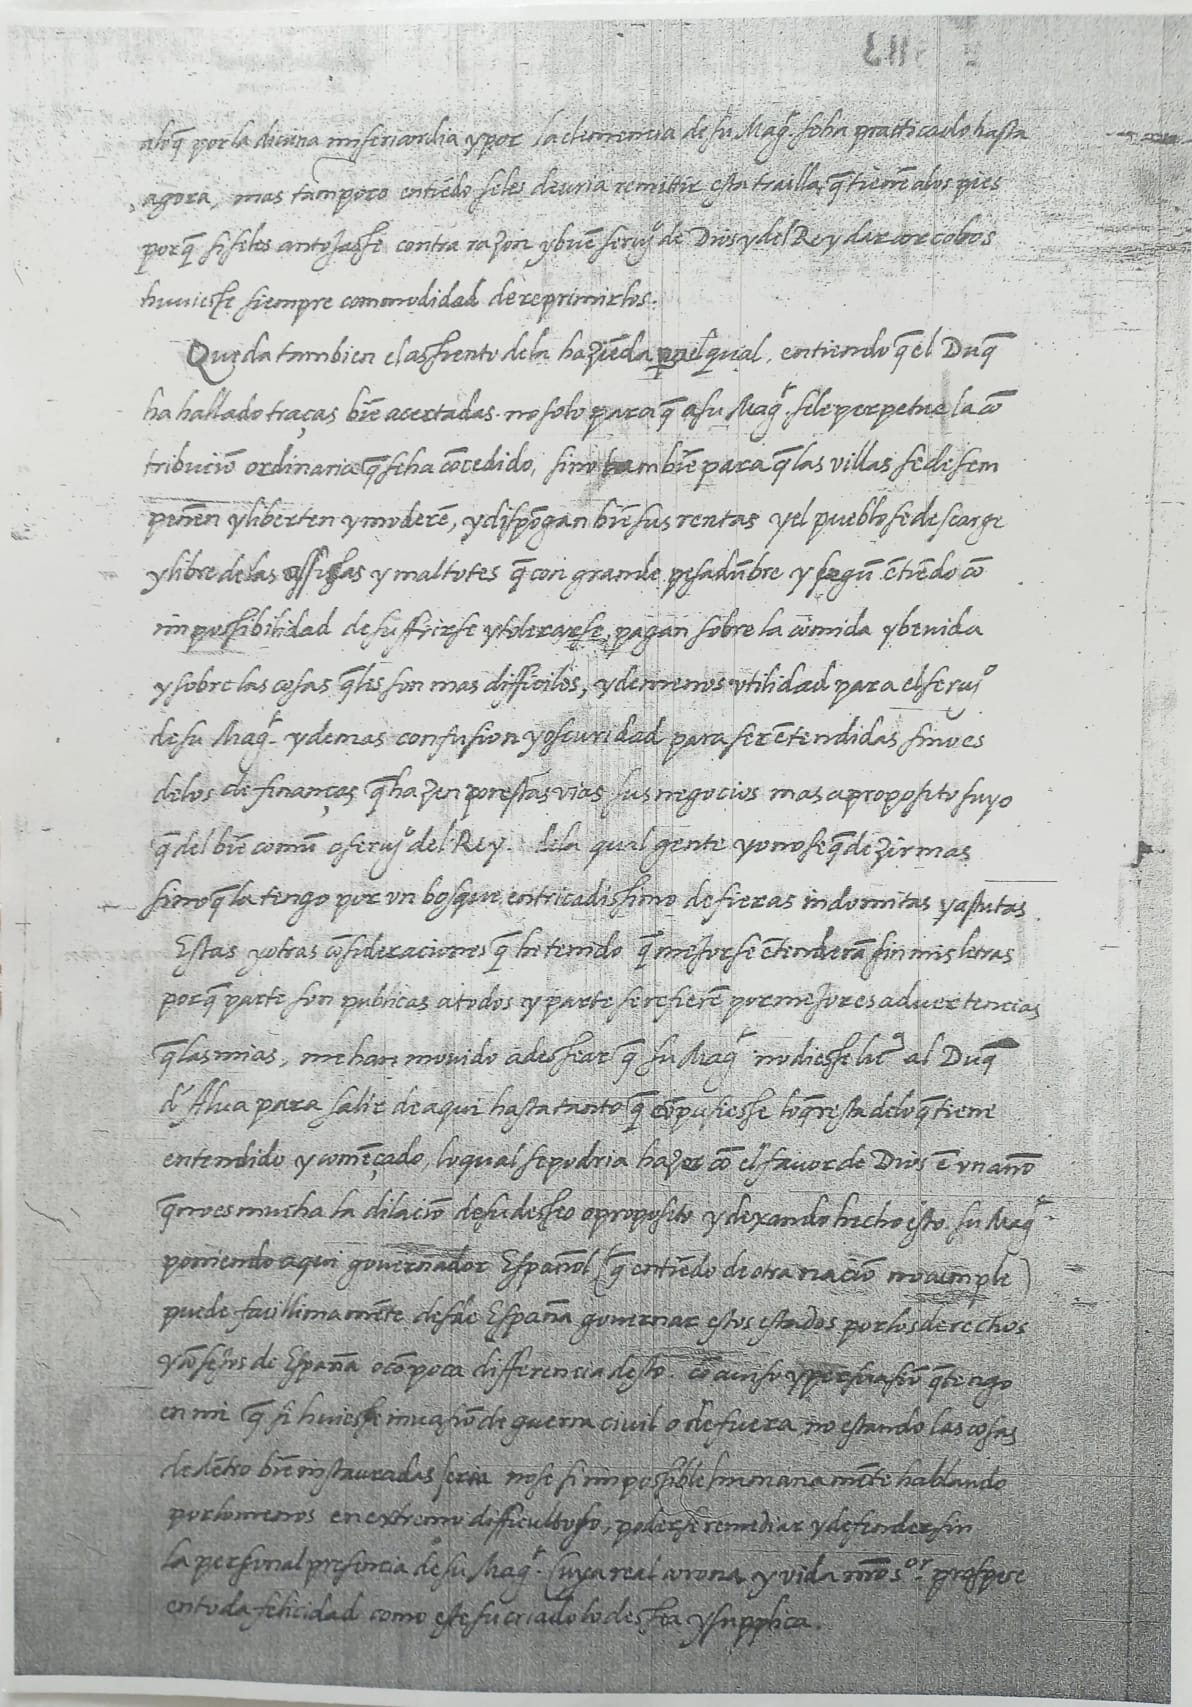 aloq̃ por la diuina misericordia y por la clemencia de su Mag.ᵈ se ha practicado hasta
agora, mas tampoco entiẽdo se les deuria remittir esta trailla q̃ tienẽ a los pies
porq̃ si se les antojasse contra razon y buẽ seruiº de Dios y del Rey dar corcobos
huuiesse siempre commodidad de reprimirlos.
Queda tambien el assiento de la haziẽda por el qual, entiendo q̃ el Duq̃
ha hallado traças biẽ acertadas no solo para q̃ a su Mag.ᵈ se le perpetue la cõ
tribuciõ ordinaria q̃ se ha cõcedido, sino tambiẽ para q̃ las villas se desem
peñen y liberten y moderẽ, y dispõgan biẽ sus rentas y el pueblo se descarge
y libre de las assisas y maltotes q̃ con grande pesadũbre y segũ ẽtiẽdo cõ
impossibilidad de suffrirse y tolerarse, pagan sobre la comida y beuida
y sobre las cosas q̃ les son mas difficiles, y de menos vtilidad para el seruiº
de su Mag.ᵈ y de mas confusion y oscuridad para ser ẽtendidas sino es
de los de finanças q̃ hazen por estas vias sus negocios mas a proposito suyo
q̃ del biẽ comũ o seruiº del Rey. de la qual gente yo no se q̃ dezir mas
sino q̃ la tengo por vn bosque entricadissimo de fieras indomitas y astutas.
Estas y otras cõsideraciones q̃ he tenido q̃ mejor se ẽtenderã sin mis letras
porq̃ parte son publicas a todos y parte se refierẽ por mejores aduertencias
q̃ las mias, me han mouido a dessear q̃ su Mag.ᵈ no diesse licª al Duq̃
d'Alua para salir de aqui hasta tanto q̃ cõpusiesse lo q̃ resta de lo q̃ tiene
entendido y comẽçado, lo qual se podria hazer cõ el fauor de Dios ẽ vn año
q̃ no es mucha la dilaciõ de su desseo o proposito y dexando hecho esto su Mag.ᵈ
poniendo aqui gouernador Español (q̃ entiẽdo de otra naciõ no cumple)
puede facillimamẽte desde España gouernar estos estados por los derechos
y cõsejos de España o cõ poca differencia desto. cõ auiso y persuasiõ q̃ tengo
en mi q̃ si huiesse inuasiõ de guerra ciuil o de fuera no estando las cosas
de dẽtro biẽ instauradas seria no se si impossible humanamẽte hablando
por lo menos en extremo difficultoso, poderse remediar y defender sin
la personal presencia de su Mag.ᵈ Cuya real corona y vida nr̃o s.ᵒʳ prospere
en toda felicidad como este su criado lo dessea y supplica.